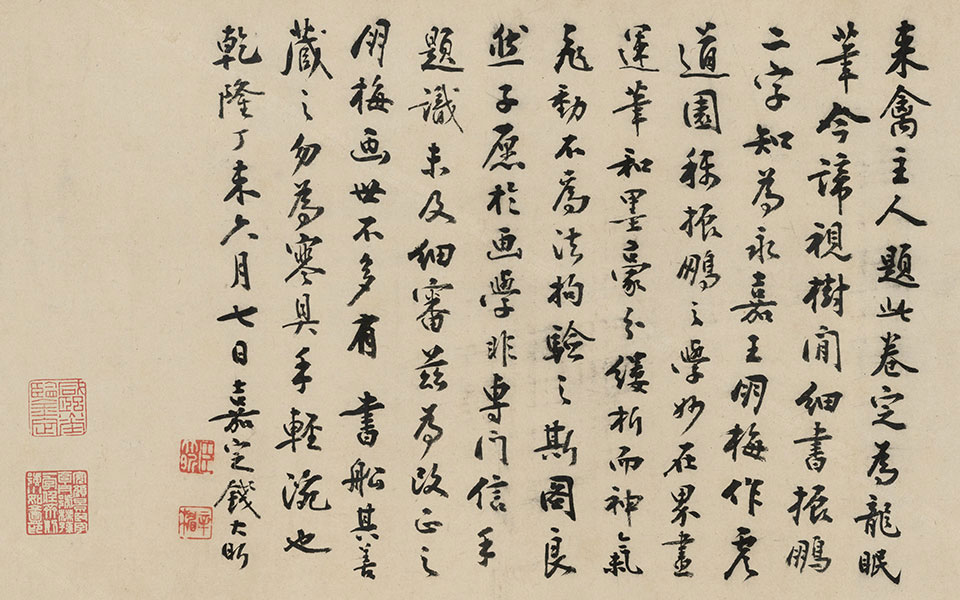 來禽主人題此卷定為龍眠
筆今諦視樹閒細書振鵬
二字知為永嘉王朋梅作虞
道園稱振鵬之學妙在界畫
運筆和墨豪分縷析而神氣
飛動不為法拘驗之斯圖良
然予愿於画學非專門信手
題識未及細審茲為改正之
朋梅画世不多有 書船其善
藏之勿為寒具手輕涴也
乾隆丁未六月七日嘉定錢大昕